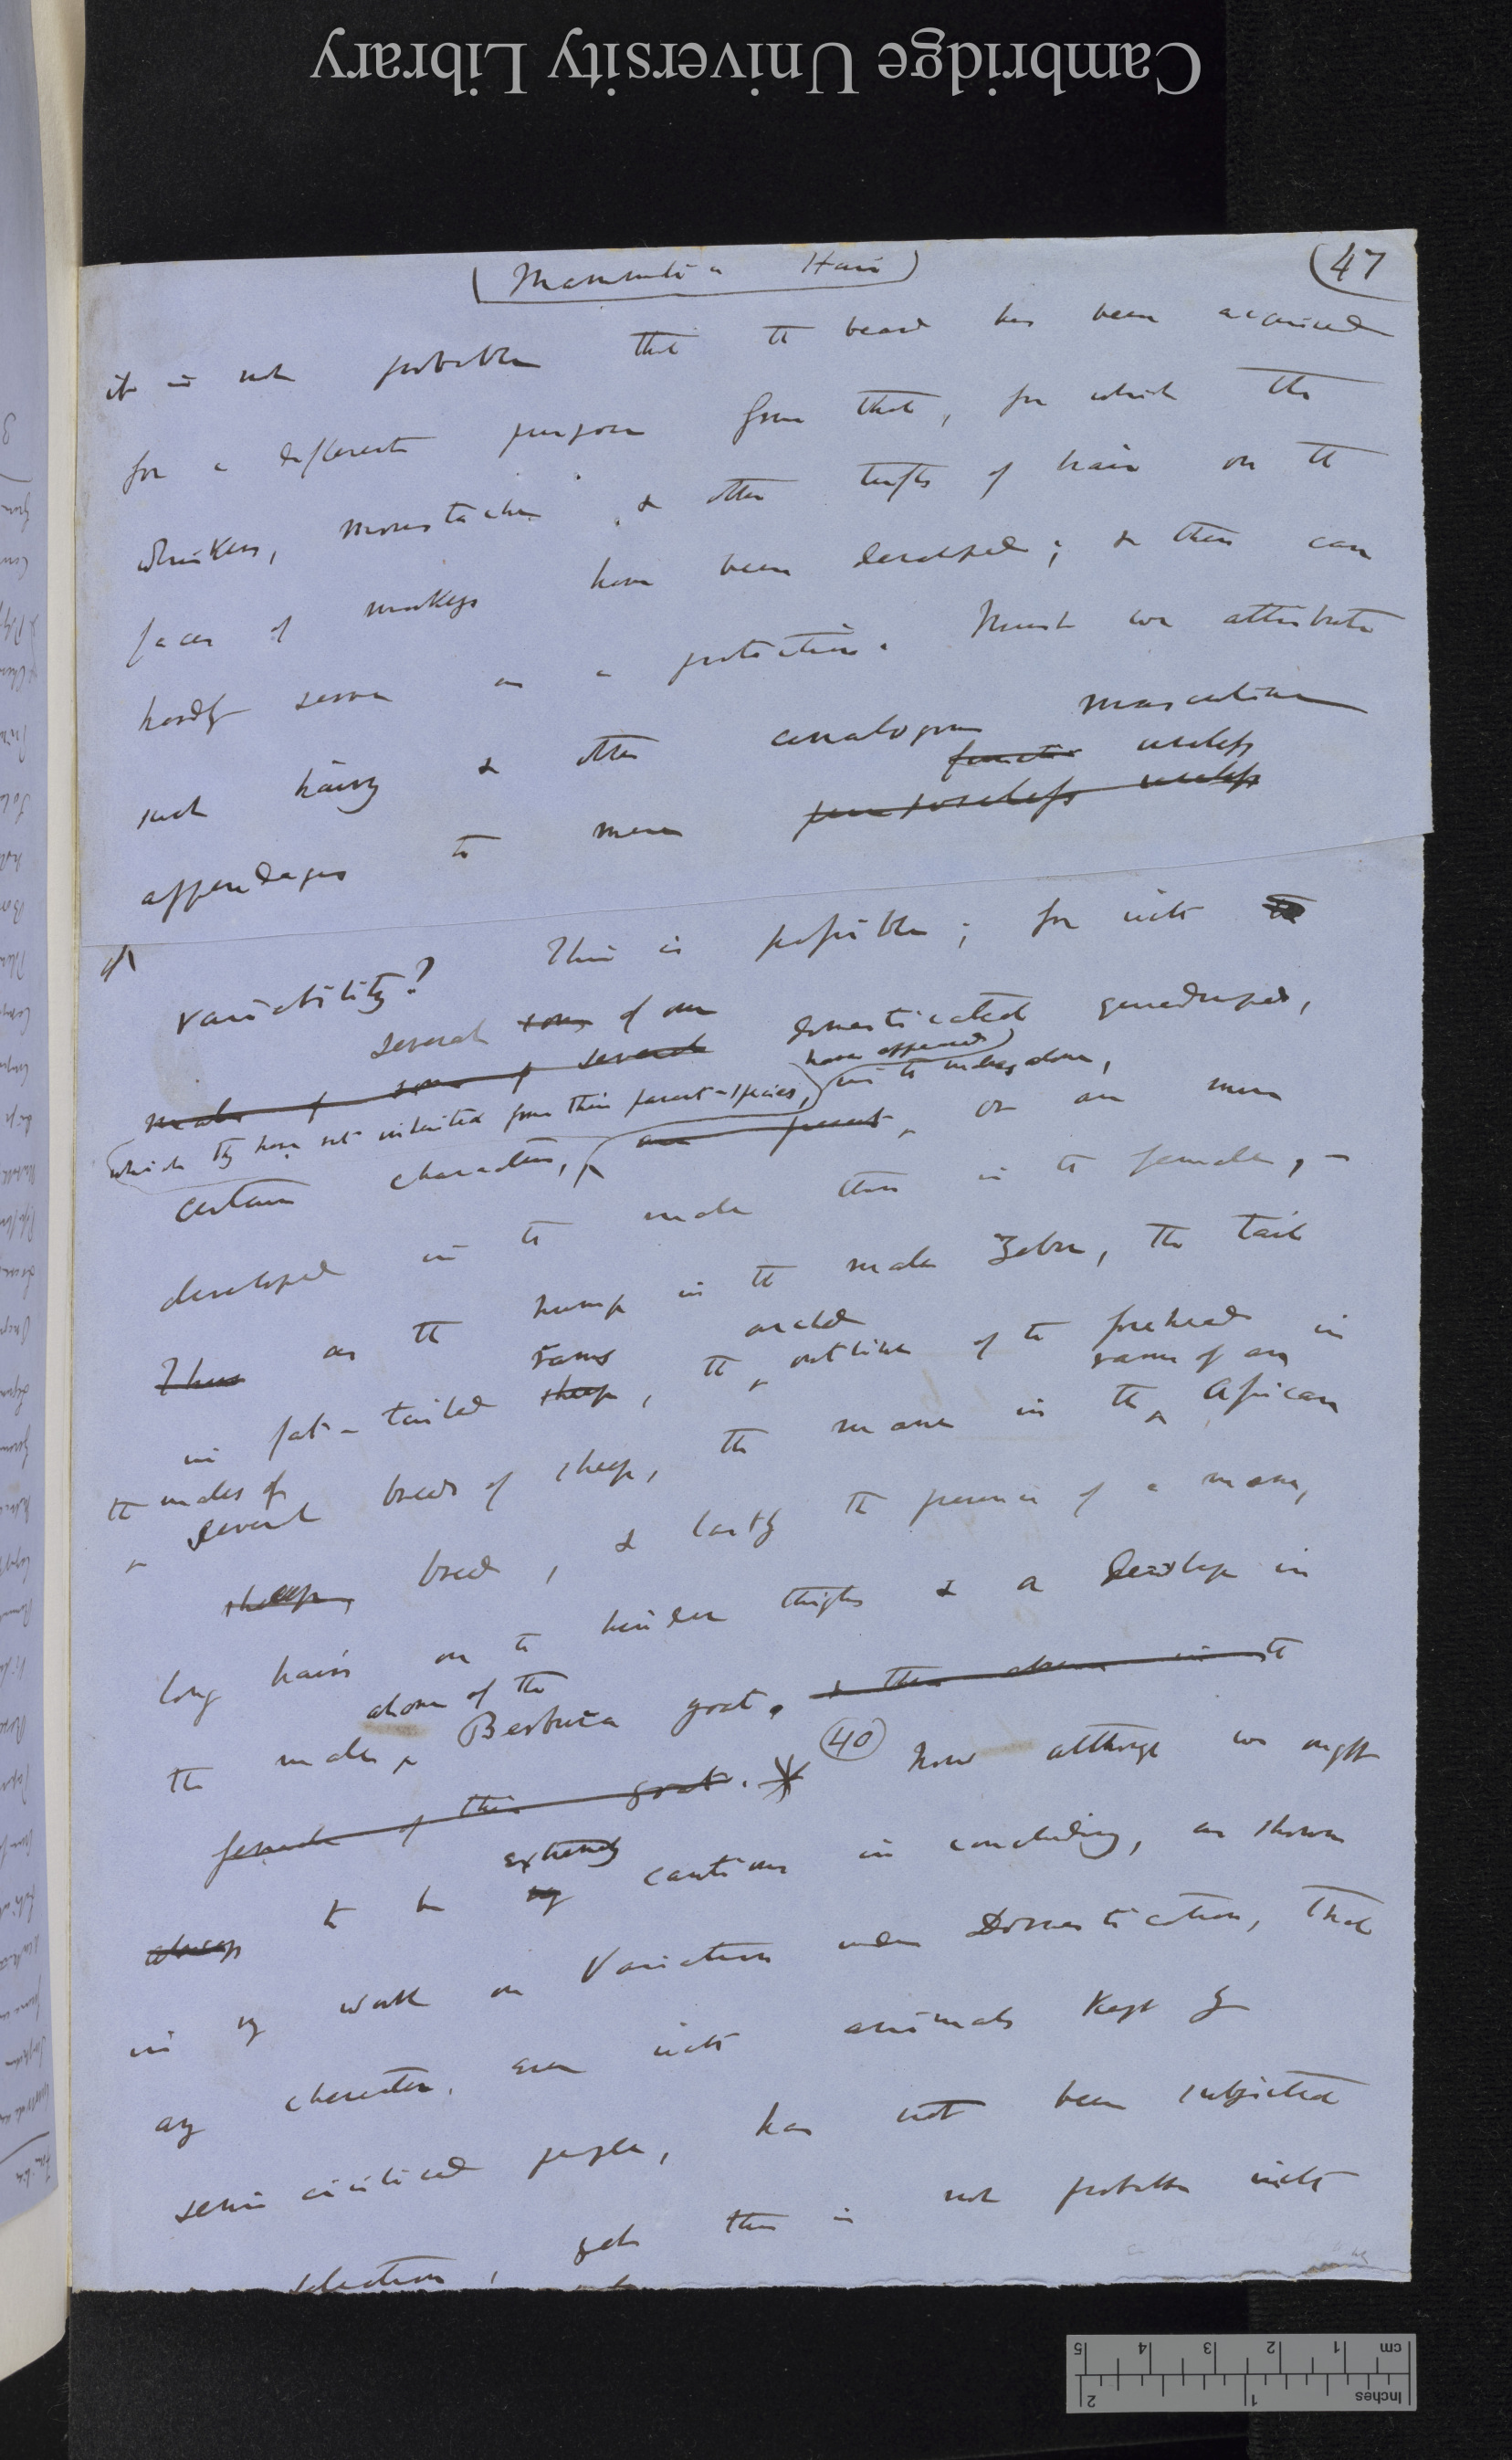 Cambridge University Library
(Mammalia Hair)
(47
it is not probable that the beard has been acquired
for a different purpose from that, for which the
whiskers, moustache & other tufts of hair on the
faces of monkeys have been developed; & these can
hardly serve as a protection. Must we attribute
such hairy & other analogous masculine
useless
appendages to mere purposeless useless
variability? This is possible; for with
several some of our
males of some of several domesticated quadrupeds,
have appeared
which they have not inherited from their parent-species, in the males alone,
certain characters, are present, or are more
developed in the male than in the female,—
Thus as the hump in the male Zebu, the tail
rams arched
in fat-tailed sheep, the outline of the forehead in
the males of rams of an
several breeds of sheep, the mane in the African
sheep, breed, & lastly the presence of a mane,
long hairs on the hinder thighs & a dewlap in
alone of the
the male Berbura goat. & their absence in the
female of this goat. (40) Now although we ought
extremely
always to be very cautious in concluding, as shown
in my work on Variation under Domestication, that
any character, even with animals kept by
semi civilised people, has not been subjected
selection, yet this is not probable with
cm 1 2 3 4 5
Inches 1 2